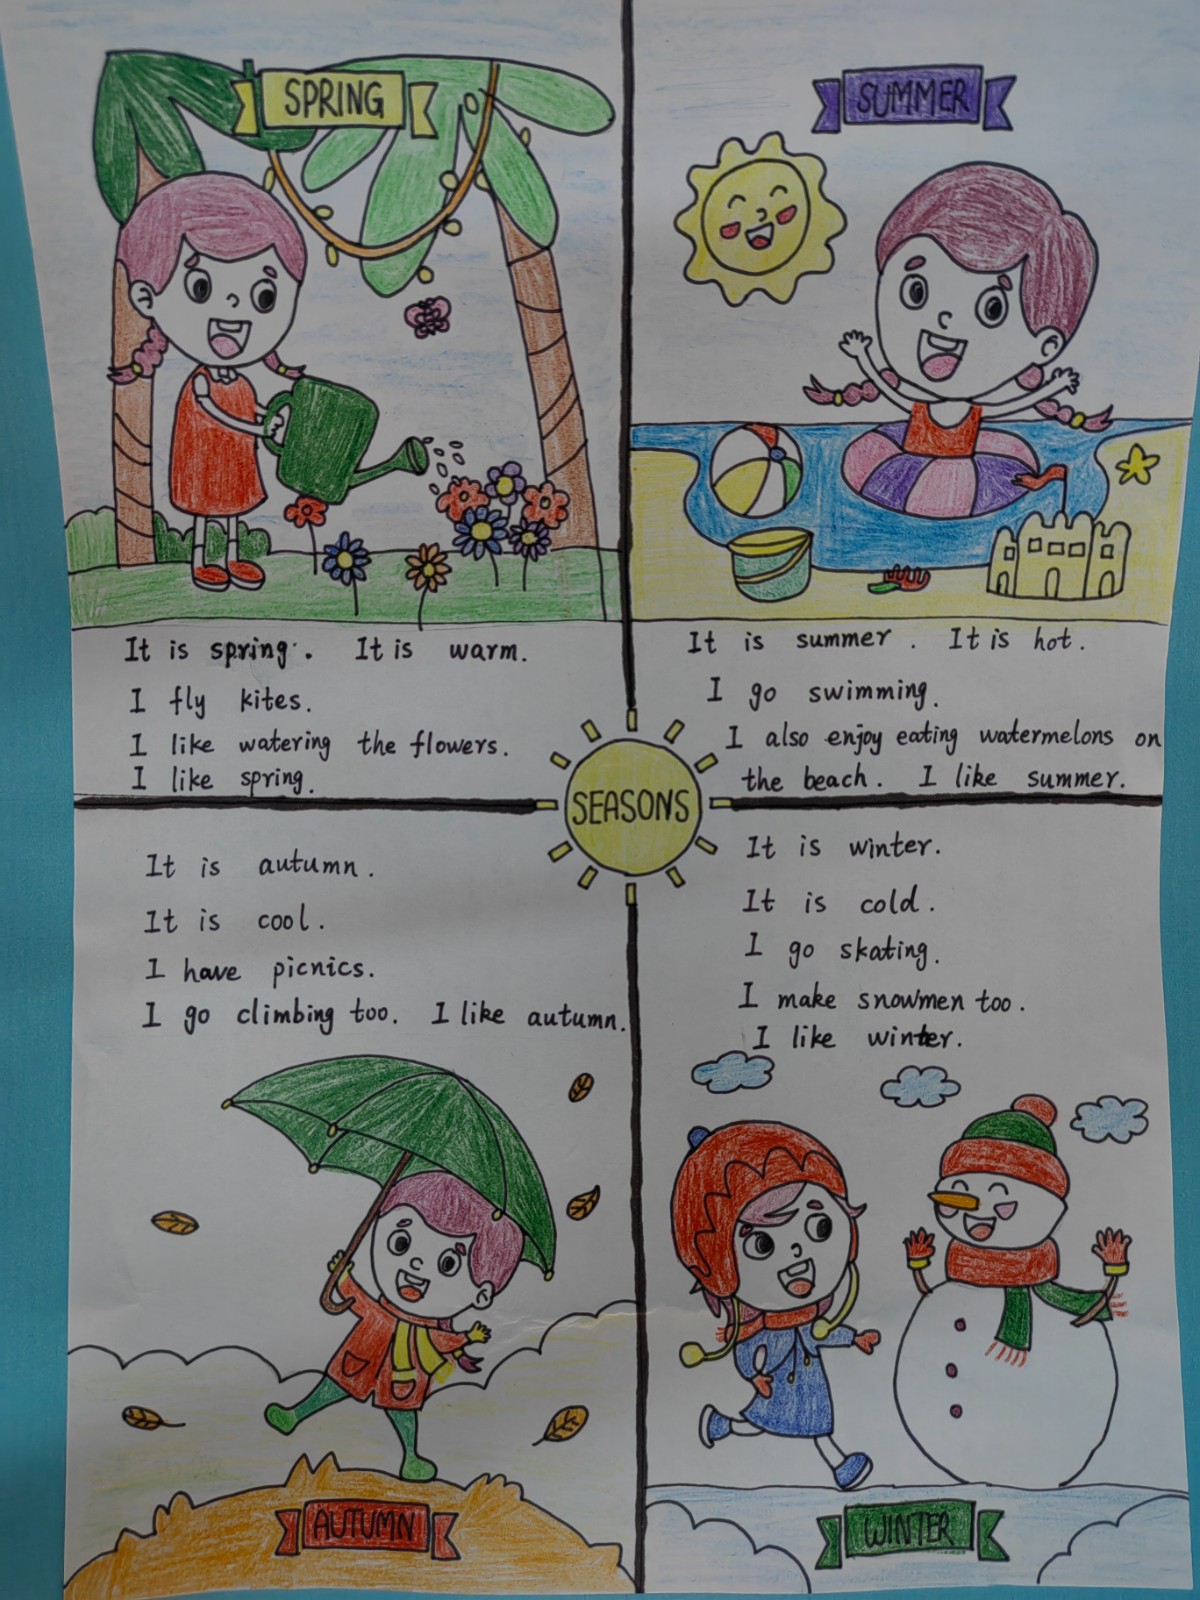 SPRING
It is spring. It is warm.
I fly kites.
I like watering the flowers.
I like spring.
SUMMER
It is summer. It is hot.
I go swimming.
I also enjoy eating watermelons on
the beach. I like summer.
SEASONS
It is autumn.
It is cool.
I have picnics.
I go climbing too. I like autumn.
AUTUMN
It is winter.
It is cold.
I go skating.
I make snowmen too.
I like winter.
WINTER